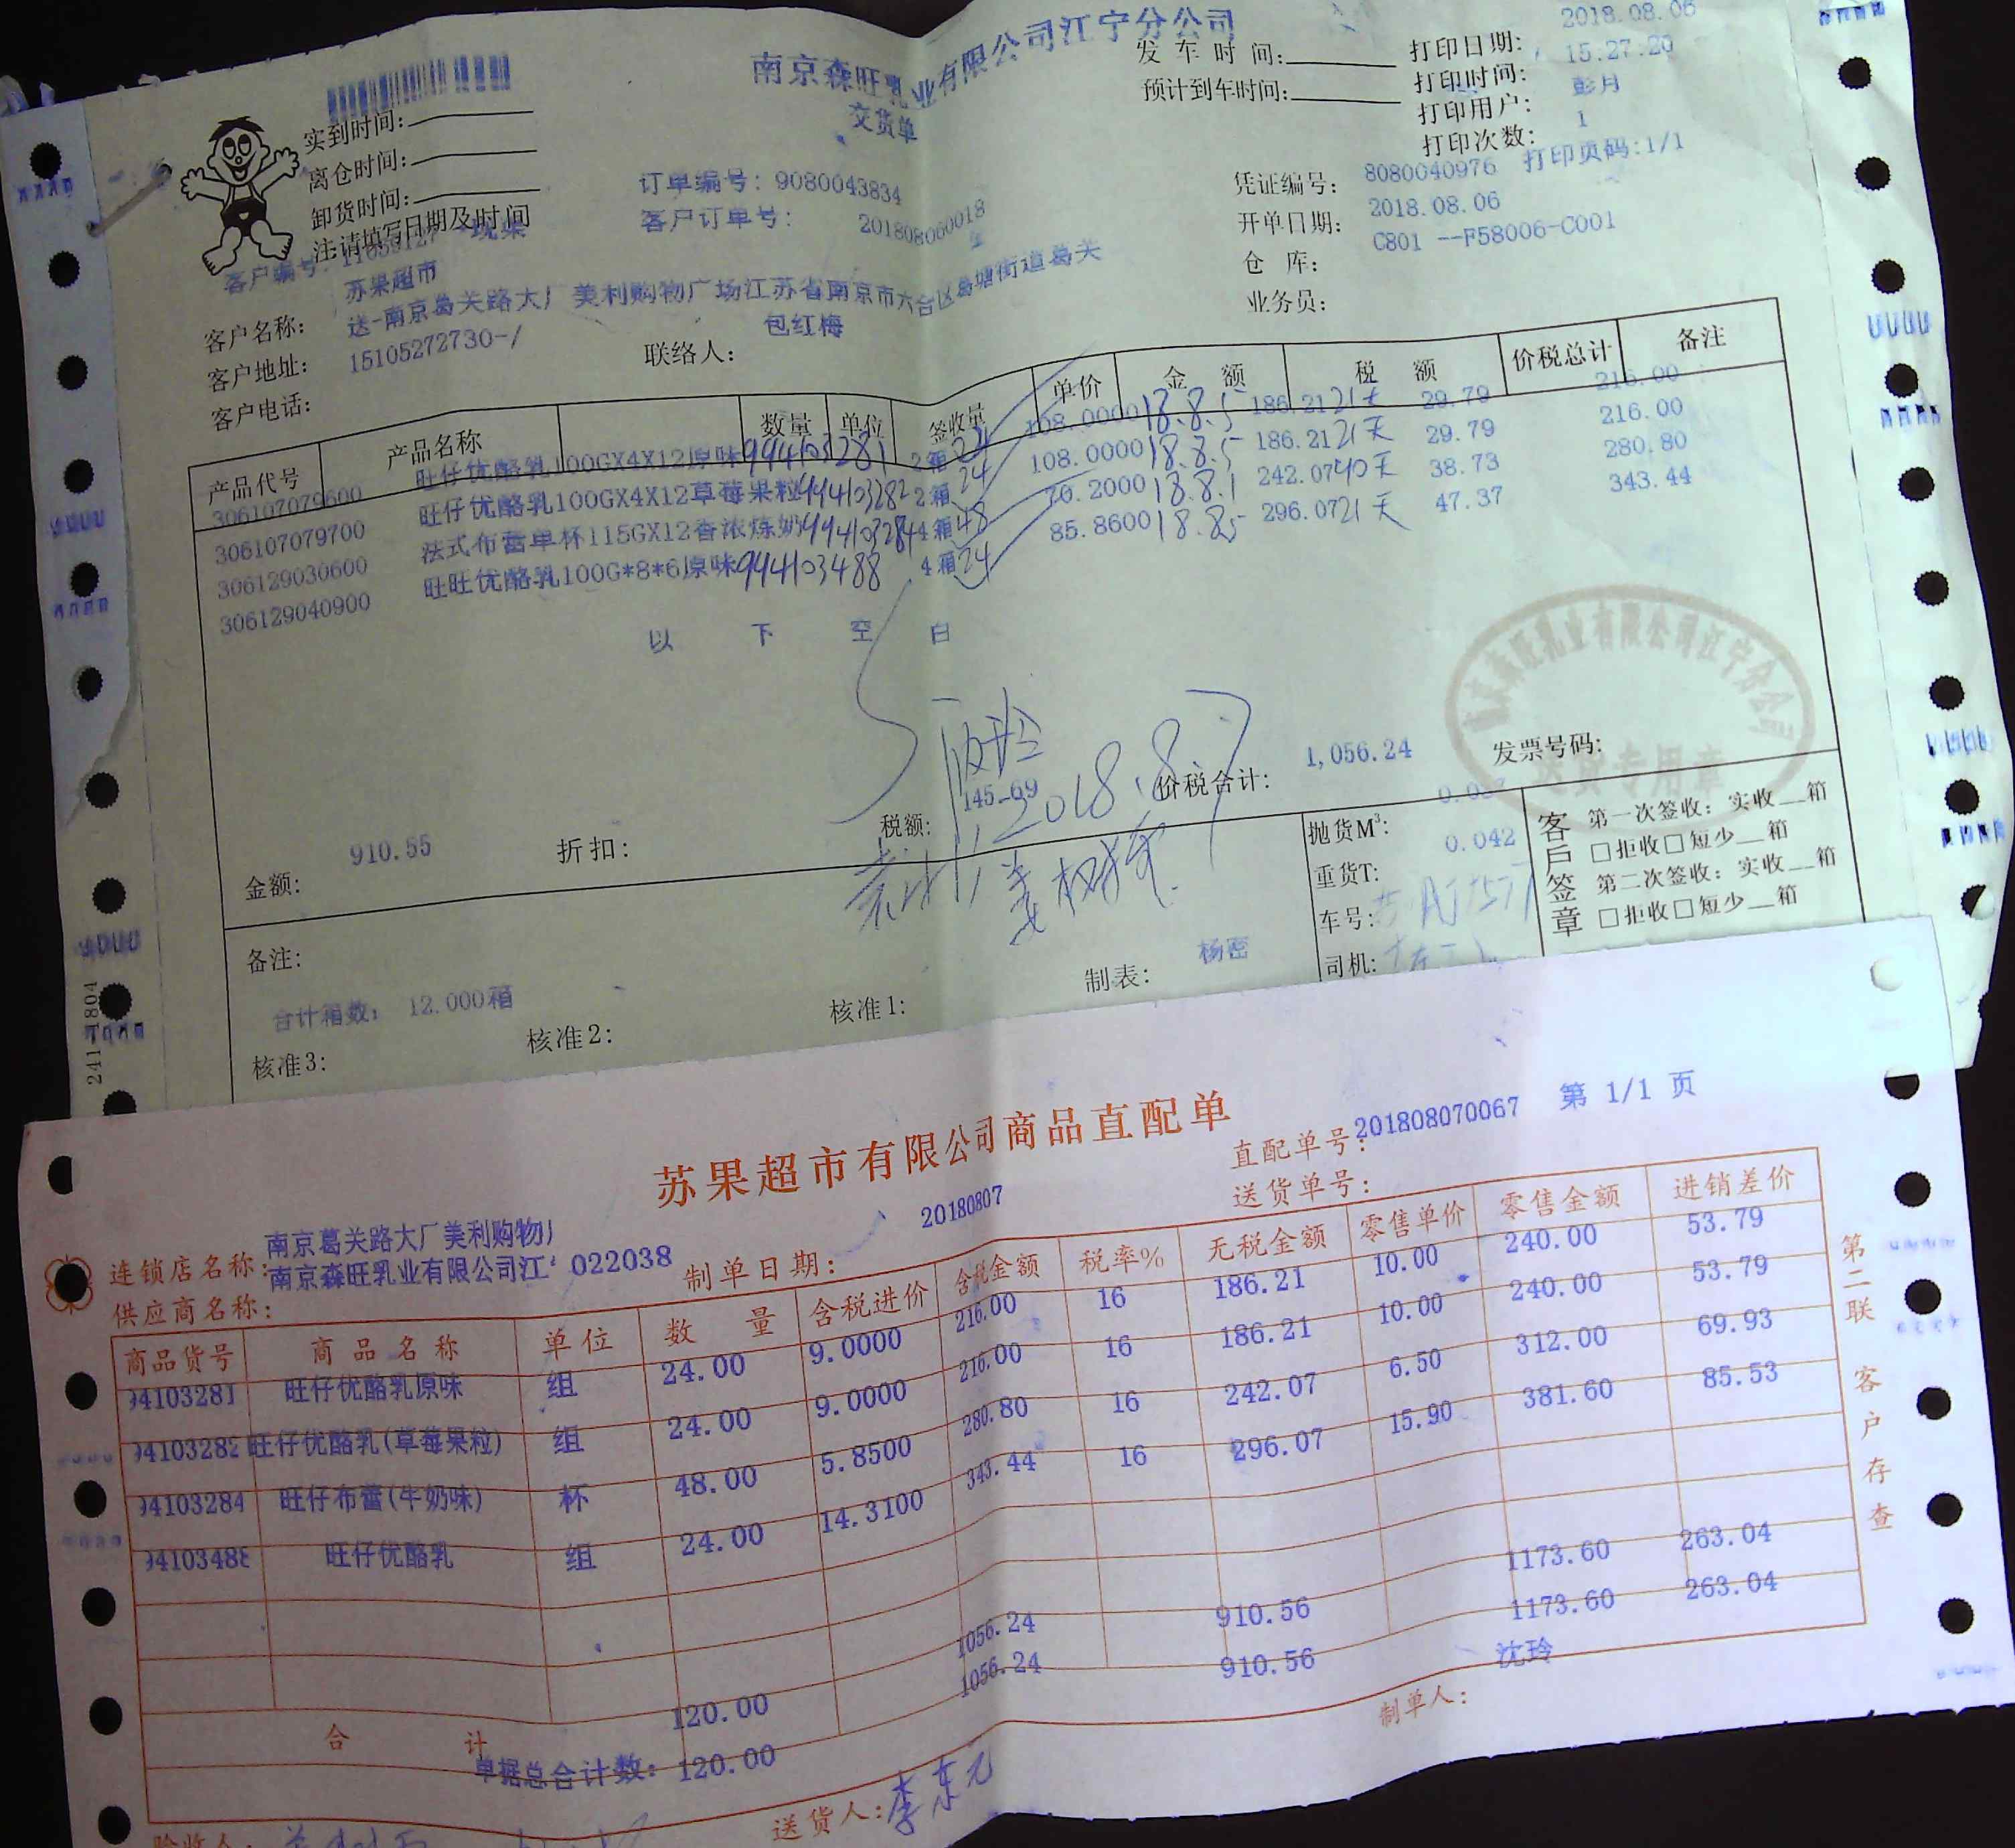 南京森旺乳业有限公司江宁分公司
交货单
发车时间:
预计到车时间:
打印日期: 2018.08.06
打印时间: 15:27:20
打印用户: 彭月
打印次数: 1
实到时间:
离仓时间:
卸货时间:
注:请填写日期及时间
订单编号: 9080043834
客户订单号: 201808060018
凭证编号: 8080040976 打印页码:1/1
开单日期: 2018.08.06
仓 库: C801 --F58006-C001
业务员:
客户编号:
客户名称: 苏果超市
客户地址: 送-南京葛关路大厂美利购物广场江苏省南京市六合区葛塘街道葛关
客户电话: 15105272730-/
联络人: 包红梅
产品代号 产品名称 数量 单位 签收量 单价 金额 税额 价税总计 备注
306107079600 旺仔优酪乳100GX4X12原味 94103281 2 箱 24 108.0000 18.8.5 186.21 21天 29.79 216.00
306107079700 旺仔优酪乳100GX4X12草莓果粒 94103282 2 箱 24 108.0000 18.8.5 186.21 21天 29.79 216.00
306129030600 法式布蕾单杯115GX12香浓炼奶 94103284 4 箱 48 70.2000 18.8.1 242.07 40天 38.73 280.80
306129040900 旺旺优酪乳100G*8*6原味 94103488 4 箱 24 85.8600 18.8.5 296.07 21天 47.37 343.44
以 下 空 白
2018.8.7
金额: 910.55 折扣: 税额: 145.69 价税合计: 1,056.24 发票号码:
送货专用章
抛货M³:
重货T: 0.042
车号:
司机:
客户签章
第一次签收: 实收__箱
□拒收□短少__箱
第二次签收: 实收__箱
□拒收□短少__箱
备注:
合计箱数: 12.000箱
制表: 杨密
核准3: 核准2: 核准1:
苏果超市有限公司商品直配单
直配单号: 201808070067 第 1/1 页
送货单号:
连锁店名称: 南京葛关路大厂美利购物
供应商名称: 南京森旺乳业有限公司江 022038
制单日期: 20180807
商品货号 商品名称 单位 数量 含税进价 含税金额 税率% 无税金额 零售单价 零售金额 进销差价
94103281 旺仔优酪乳原味 组 24.00 9.0000 216.00 16 186.21 10.00 240.00 53.79
94103282 旺仔优酪乳(草莓果粒) 组 24.00 9.0000 216.00 16 186.21 10.00 240.00 53.79
94103284 旺仔布蕾(牛奶味) 杯 48.00 5.8500 280.80 16 242.07 6.50 312.00 69.93
94103488 旺仔优酪乳 组 24.00 14.3100 343.44 16 296.07 15.90 381.60 85.53
合 计 120.00 1056.24 910.56 1173.60 263.04
单据总合计数: 120.00 1056.24 910.56 1173.60 263.04
送货人: 李东元
制单人: 沈玲
第二联 客户存查